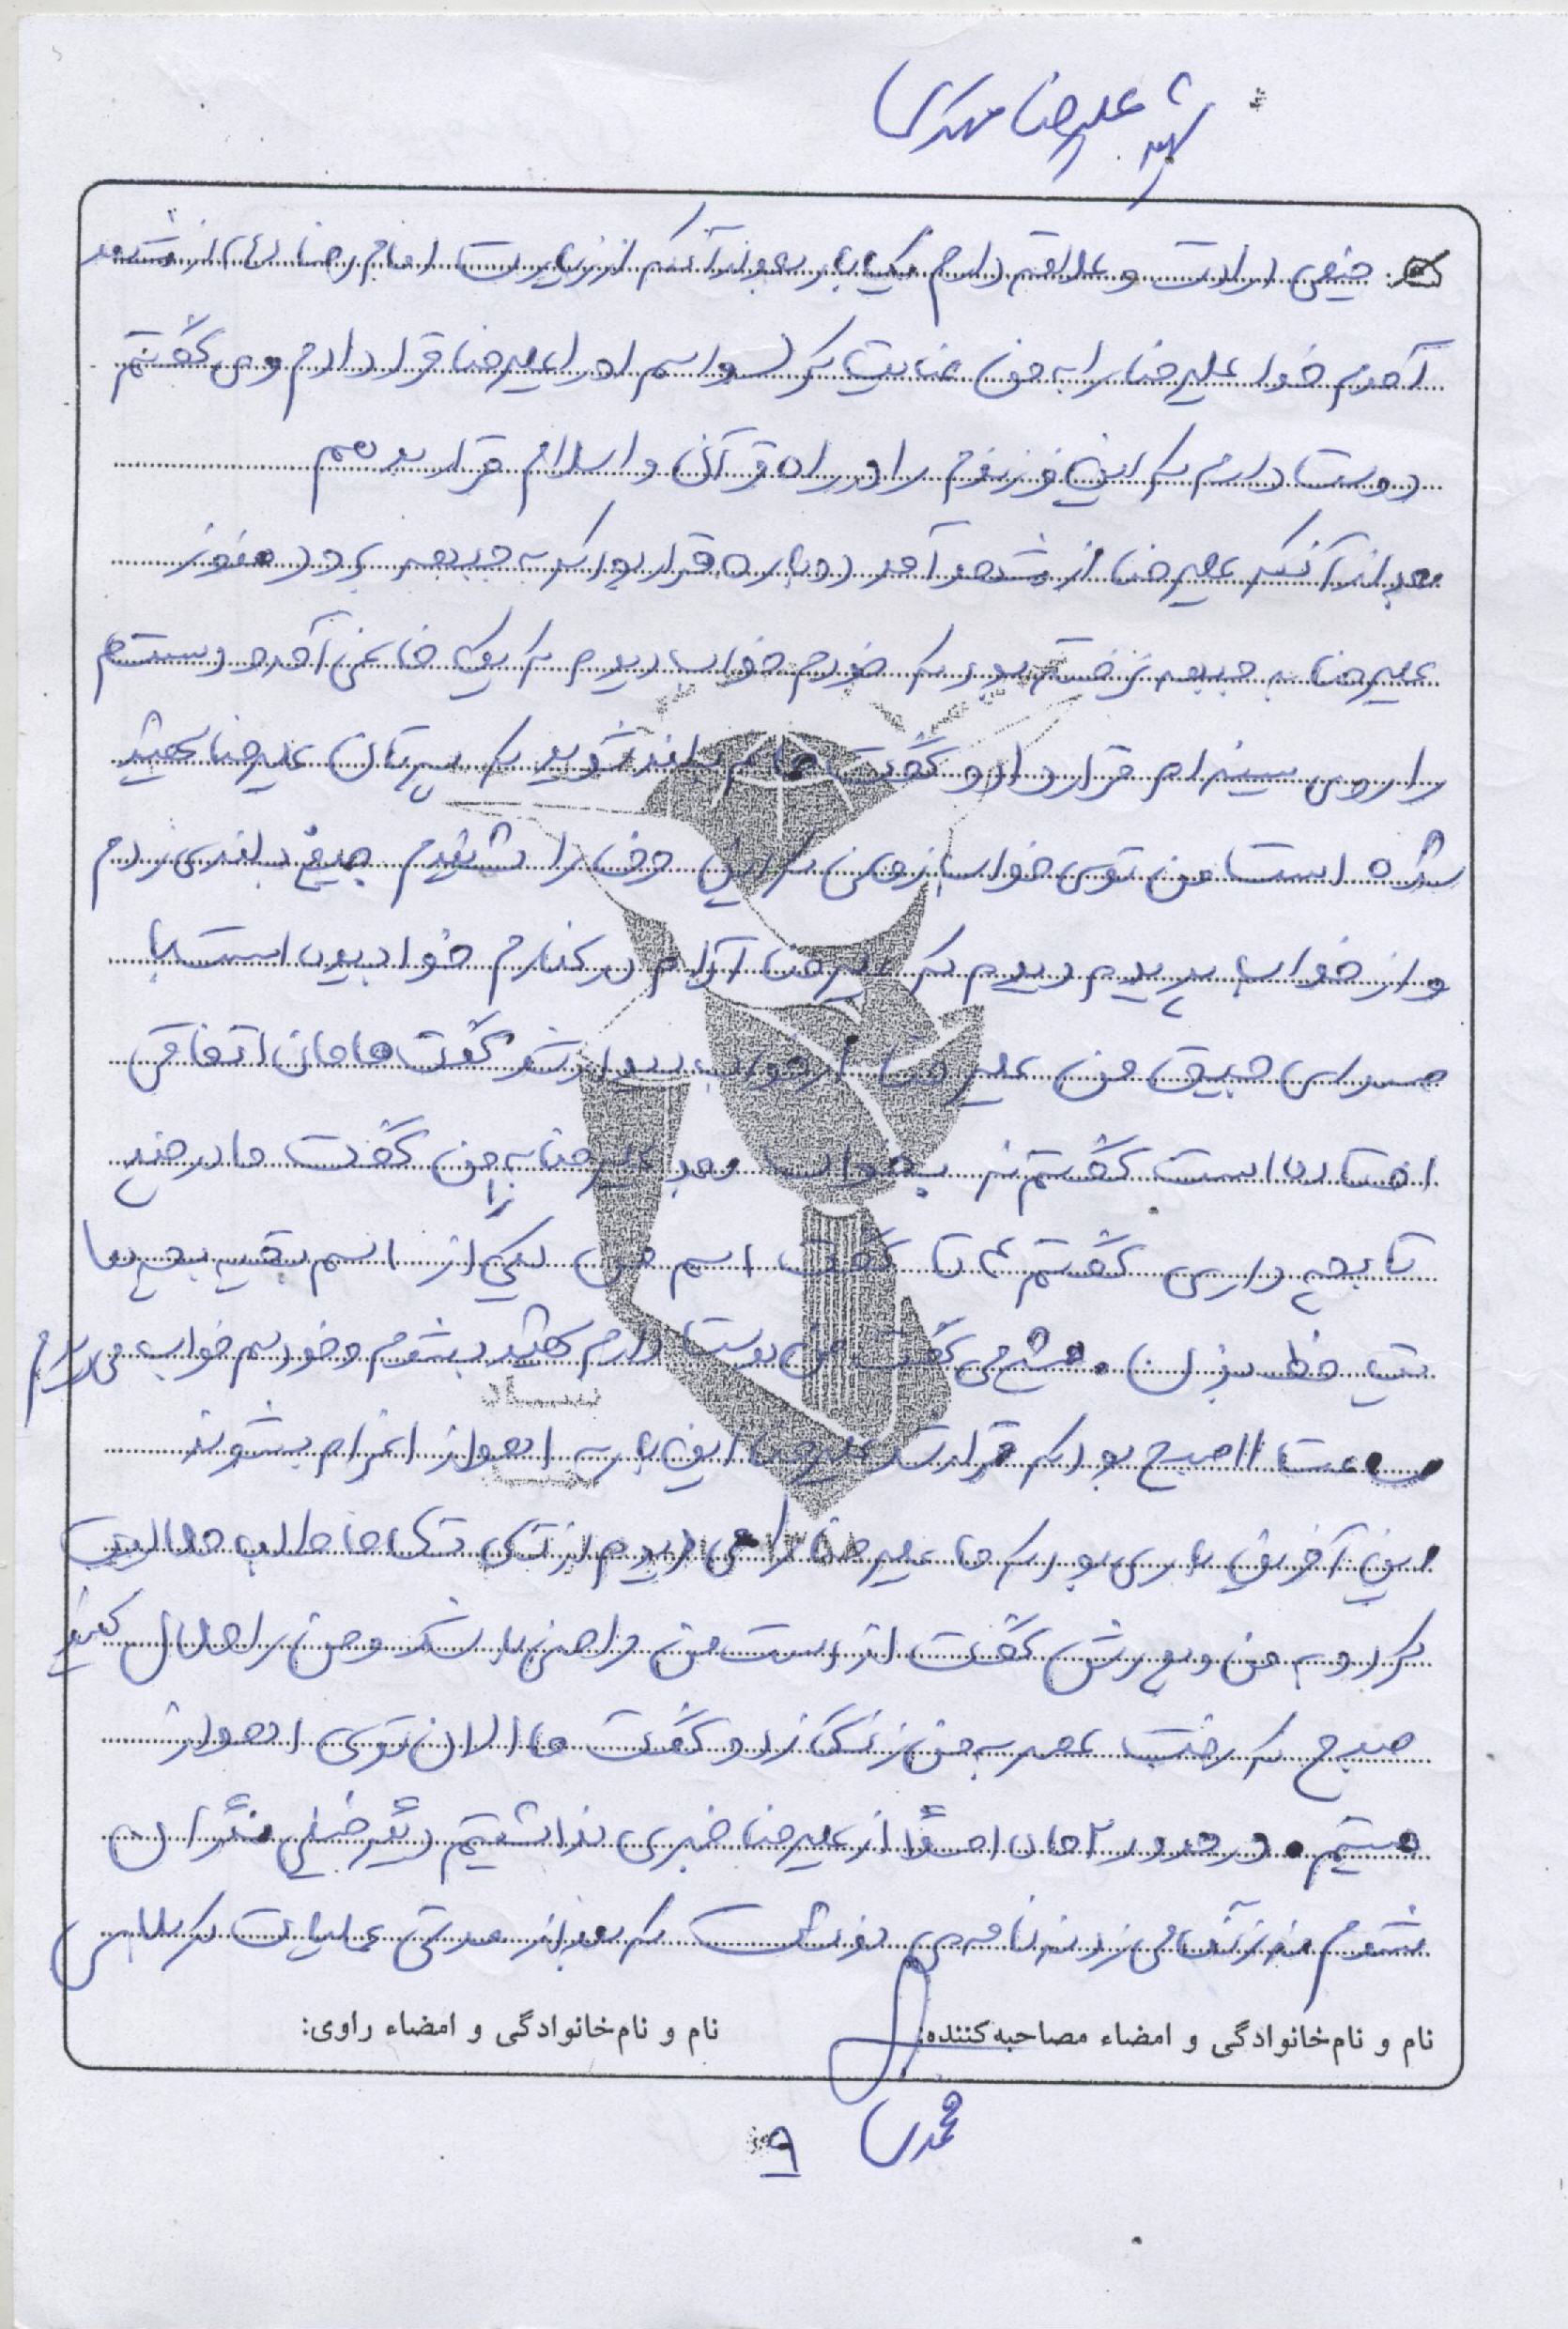 شهید علیرضا مهدی
خیلی ارادت و علاقه دارم یکبار بعد از آنکه از زیارت امام رضا (ع) از مشهد
آمدم خدا علیرضا را به من عنایت کرد و اسم او را علیرضا قرار دادم و می گفتم
دوست دارم که این فرزندم را در راه قرآن و اسلام قرار بدهم
بعد از آنکه علیرضا از مشهد آمد دوباره قرار بود که به جبهه برود هنوز
علیرضا به جبهه نرفته بود که خودم خواب دیدم که یک خانمی آمد و دستم
را روی سینه ام قرار داد و گفت خانم بلند شوید که پسرتان علیرضا شهید
شده است من توی خواب زمانی که این حرف را شنیدم جیغ بلندی زدم
و از خواب پریدم دیدم که علیرضا آرام در کنارم خوابیده است با
صدای جیغ من علیرضا از خواب بیدار شد گفت مامان اتفاقی
افتاده است گفتم نه بخواب بعد علیرضا به من گفت مادر چند
تا بچه داری گفتم ۸ تا گفت اسم من یکی را از اسم بقیه بچه ها
خط بزن همش می گفت من دوست دارم شهید بشوم و خودم خواب می دیدم
ساعت ۱۱ صبح بود که قرار شد علیرضا این بار به اهواز اعزام بشوند
این آخرین باری بود که ما علیرضا را می دیدم از تک تک ما طلب حلالیت
کرد و به من و پدرش گفت از دست من راضی باشد و من را حلال کنید
صبح که رفت عصر به من زنگ زد و گفت ما الان توی اهواز
هستیم. در حدود ۲ ماه اصلاً از علیرضا خبری نداشتیم دیگر خیلی نگران
شدم نه زنگ می زد نه نامه می نوشت که بعد از مدتی عملیات کربلای
نام و نام‌خانوادگی و امضاء مصاحبه‌کننده: نام و نام‌خانوادگی و امضاء راوی:
محمدی
۹